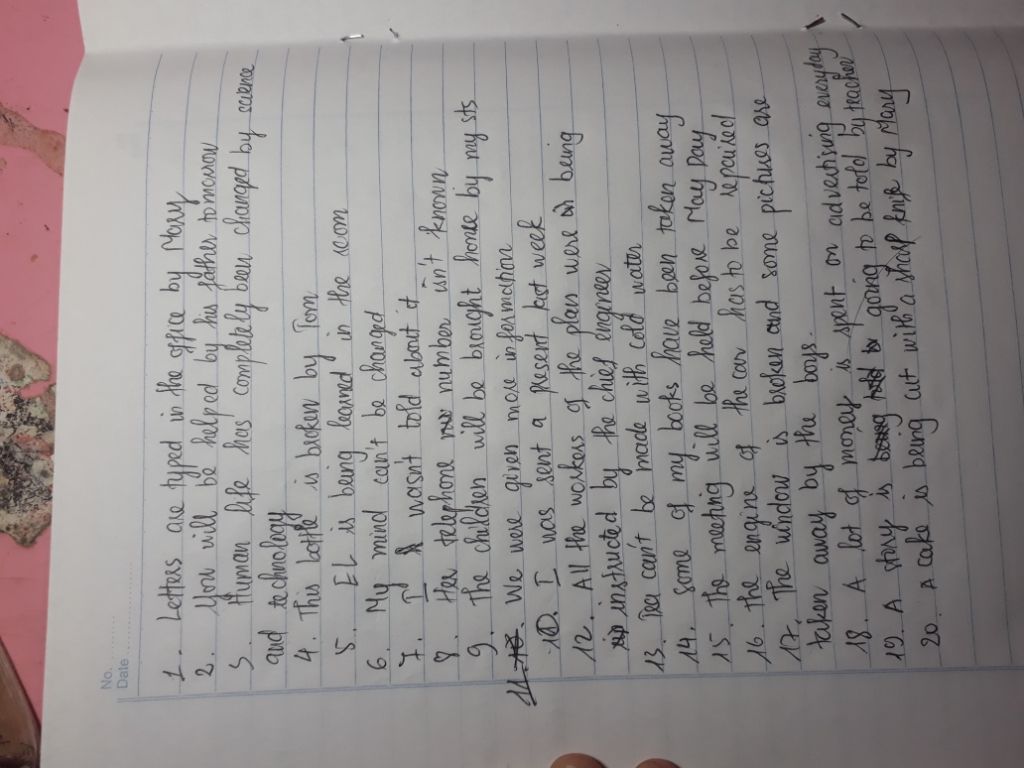 No.
Date
1. Letters are typed in the office by Mary
2. You will be helped by his father tomorrow
3. Human life has completely been changed by science
and technology
4. This bottle is broken by Tom
5. EL is being learned in the room
6. My mind can't be changed
7. I wasn't told about it
8. Her telephone number isn't known
9. The children will be brought home by my sts
11. We were given more information
10. I was sent a present last week
12. All the workers of the plan were being
instructed by the chief engineer
13. Tea can't be made with cold water
14. Some of my books have been taken away
15. The meeting will be held before May Day
16. The engine of the car has to be repaired
17. The window is broken and some pictures are
taken away by the boys.
18. A lot of money is spent on advertising everyday
19. A story is going to be told by teacher
20. A cake is being cut with a sharp knife by Mary